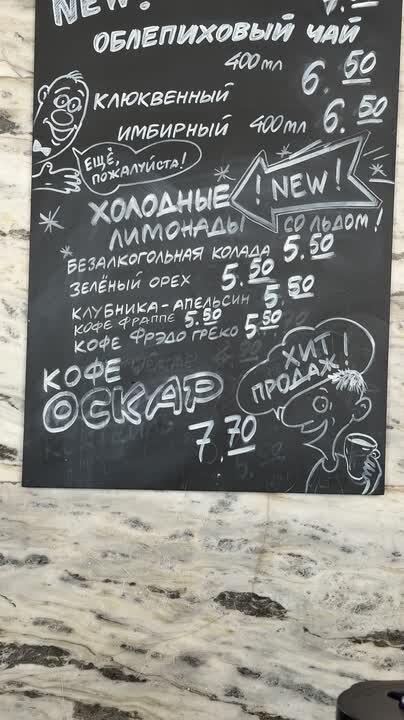 NEW!
ОБЛЕПИХОВЫЙ ЧАЙ
400 мл 6.50
КЛЮКВЕННЫЙ
ИМБИРНЫЙ 400 мл 6.50
ЕЩЁ,
ПОЖАЛУЙСТА!
! NEW !
ХОЛОДНЫЕ
ЛИМОНАДЫ СО ЛЬДОМ!
БЕЗАЛКОГОЛЬНАЯ КОЛАДА 5.50
ЗЕЛЁНЫЙ ОРЕХ 5.50
КЛУБНИКА-АПЕЛЬСИН 5.50
КОФЕ ФРАППЕ 5.50
КОФЕ ФРЭДО ГРЕКО 5.50
ХИТ
ПРОДАЖ!
КОФЕ
ОСКАР
7.70